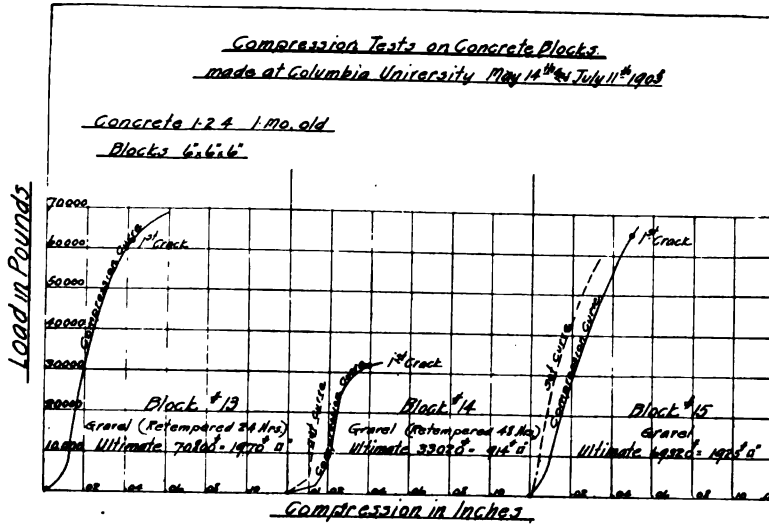 Compression Tests on Concrete Blocks.
made at Columbia University May 14th & July 11th 1903
Concrete 1-2-4 1 Mo. old
Blocks 6"x6"x6"
Load in Pounds
70,000
60,000
50,000
40,000
30,000
20,000
10,000
Compression Curve
1st Crack
Block #13
Gravel (Retempered 24 Hrs)
Ultimate 70800# = 1970# □"
Set Curve
Compression Curve
1st Crack
Block #14
Gravel (Retempered 48 Hrs)
Ultimate 33020# = 914# □"
Set Curve
Compression Curve
1st Crack
Block #15
Gravel
Ultimate 69320# = 1925# □"
.02 .04 .06 .08 .10 .02 .04 .06 .08 .10 .02 .04 .06 .08
Compression in Inches